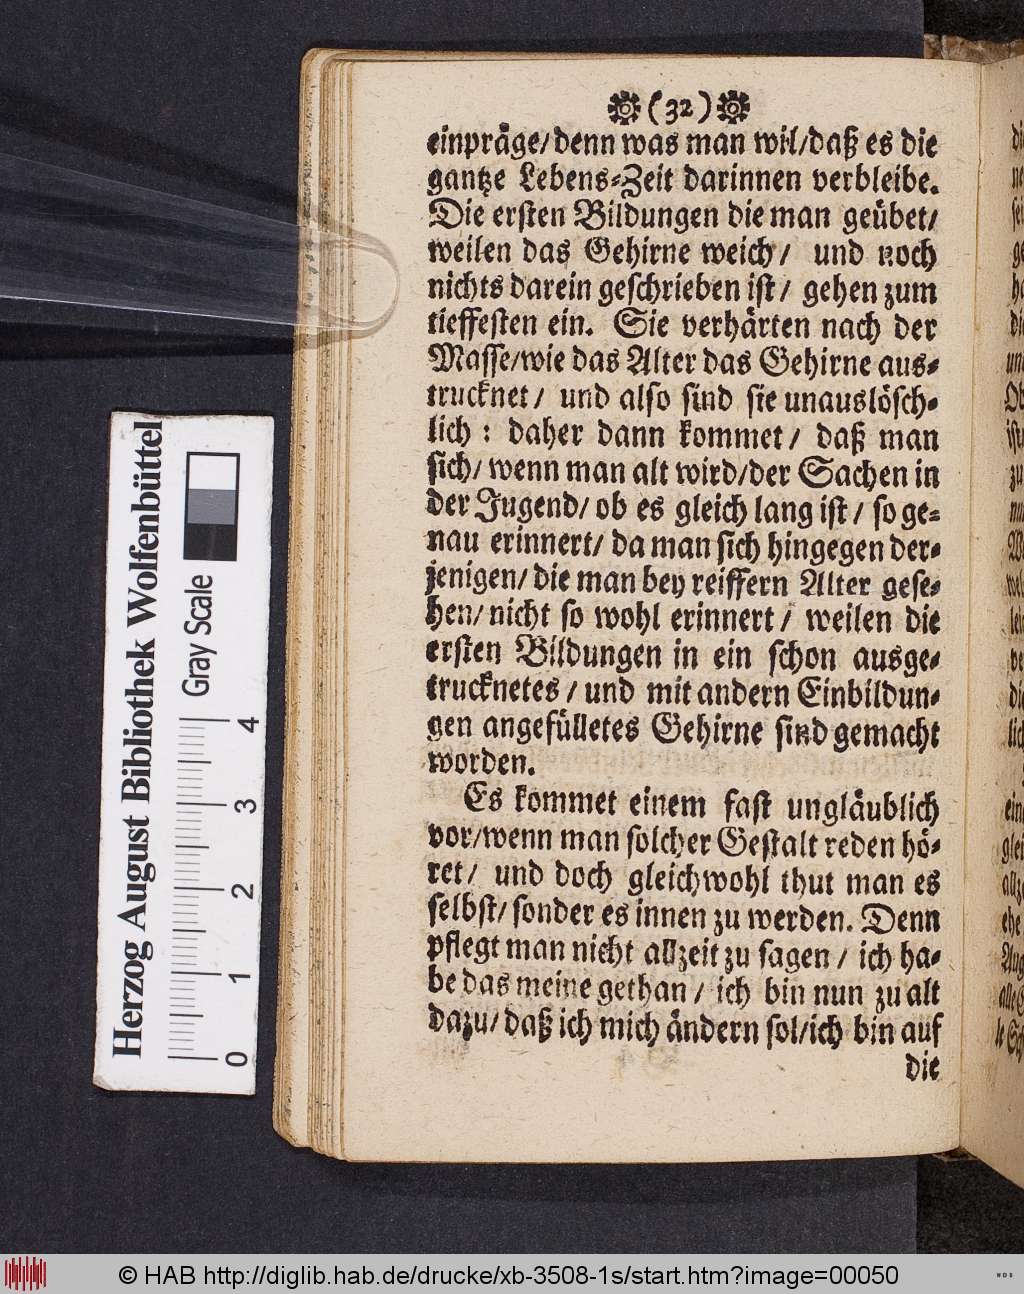 (32)
einpräge/ denn was man wil/ daß es die
gantze Lebens-Zeit darinnen verbleibe.
Die ersten Bildungen die man geübet/
weilen das Gehirne weich/ und noch
nichts darein geschrieben ist/ gehen zum
tieffesten ein. Sie verhärten nach der
Masse/ wie das Alter das Gehirne aus-
trucknet/ und also sind sie unauslösch-
lich : daher dann kommet/ daß man
sich/ wenn man alt wird/ der Sachen in
der Jugend/ ob es gleich lang ist/ so ge-
nau erinnert/ da man sich hingegen der-
jenigen/ die man bey reiffern Alter gese-
hen/ nicht so wohl erinnert/ weilen die
ersten Bildungen in ein schon ausge-
trucknetes/ und mit andern Einbildun-
gen angefülletes Gehirne sind gemacht
worden.
Es kommet einem fast ungläublich
vor/ wenn man solcher Gestalt reden hö-
ret/ und doch gleichwohl thut man es
selbst/ sonder es innen zu werden. Denn
pflegt man nicht allzeit zu sagen/ ich ha-
be das meine gethan/ ich bin nun zu alt
dazu/ daß ich mich ändern sol/ ich bin auf
die
Herzog August Bibliothek Wolfenbüttel
Gray Scale
0 1 2 3 4
© HAB http://diglib.hab.de/drucke/xb-3508-1s/start.htm?image=00050